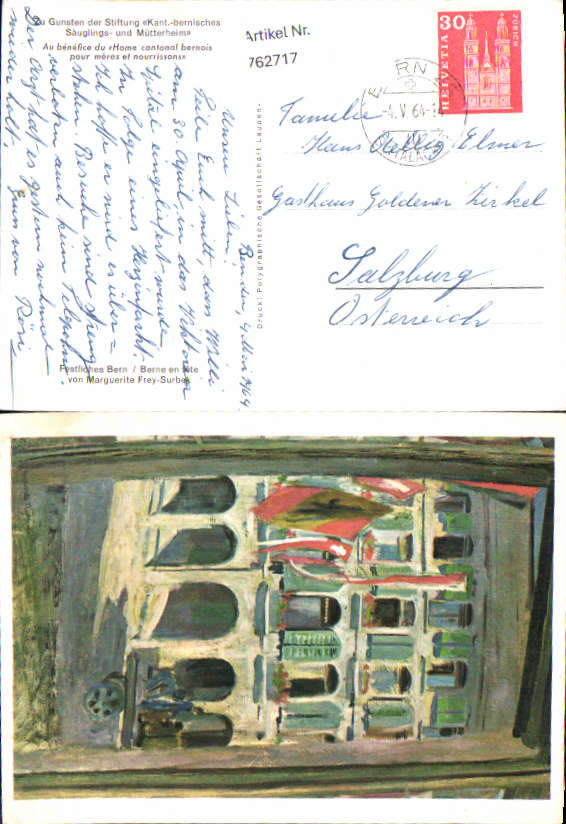 Zu Gunsten der Stiftung «Kant.-bernisches
Säuglings- und Mütterheim»
Au bénéfice du «Home cantonal bernois
pour mères et nourrissons»
Artikel Nr.
762717
HELVETIA 30
ZÜRICH
-4.V.64-14
Familie
Hans Oellig Elsner
Gasthaus Goldener Zirkel
Salzburg
Österreich
Druck: Polygraphische Gesellschaft Laupen-
4 Mai 1964
Unsere Lieben,
Teile Euch mitt, dass Willi
am 30 April, in das Viktoria
Spital eingeliefert wurde
In Folg eines Herzinfarkt.
Ich hoffe er wird es über=
stehen. Besuche sind streng
verboten auch kein Telephon
Der Arzt hat es gestern nochmal
wieder holt,
Euer von Rösi
Festliches Bern / Berne en fête
von Marguerite Frey-Surbek